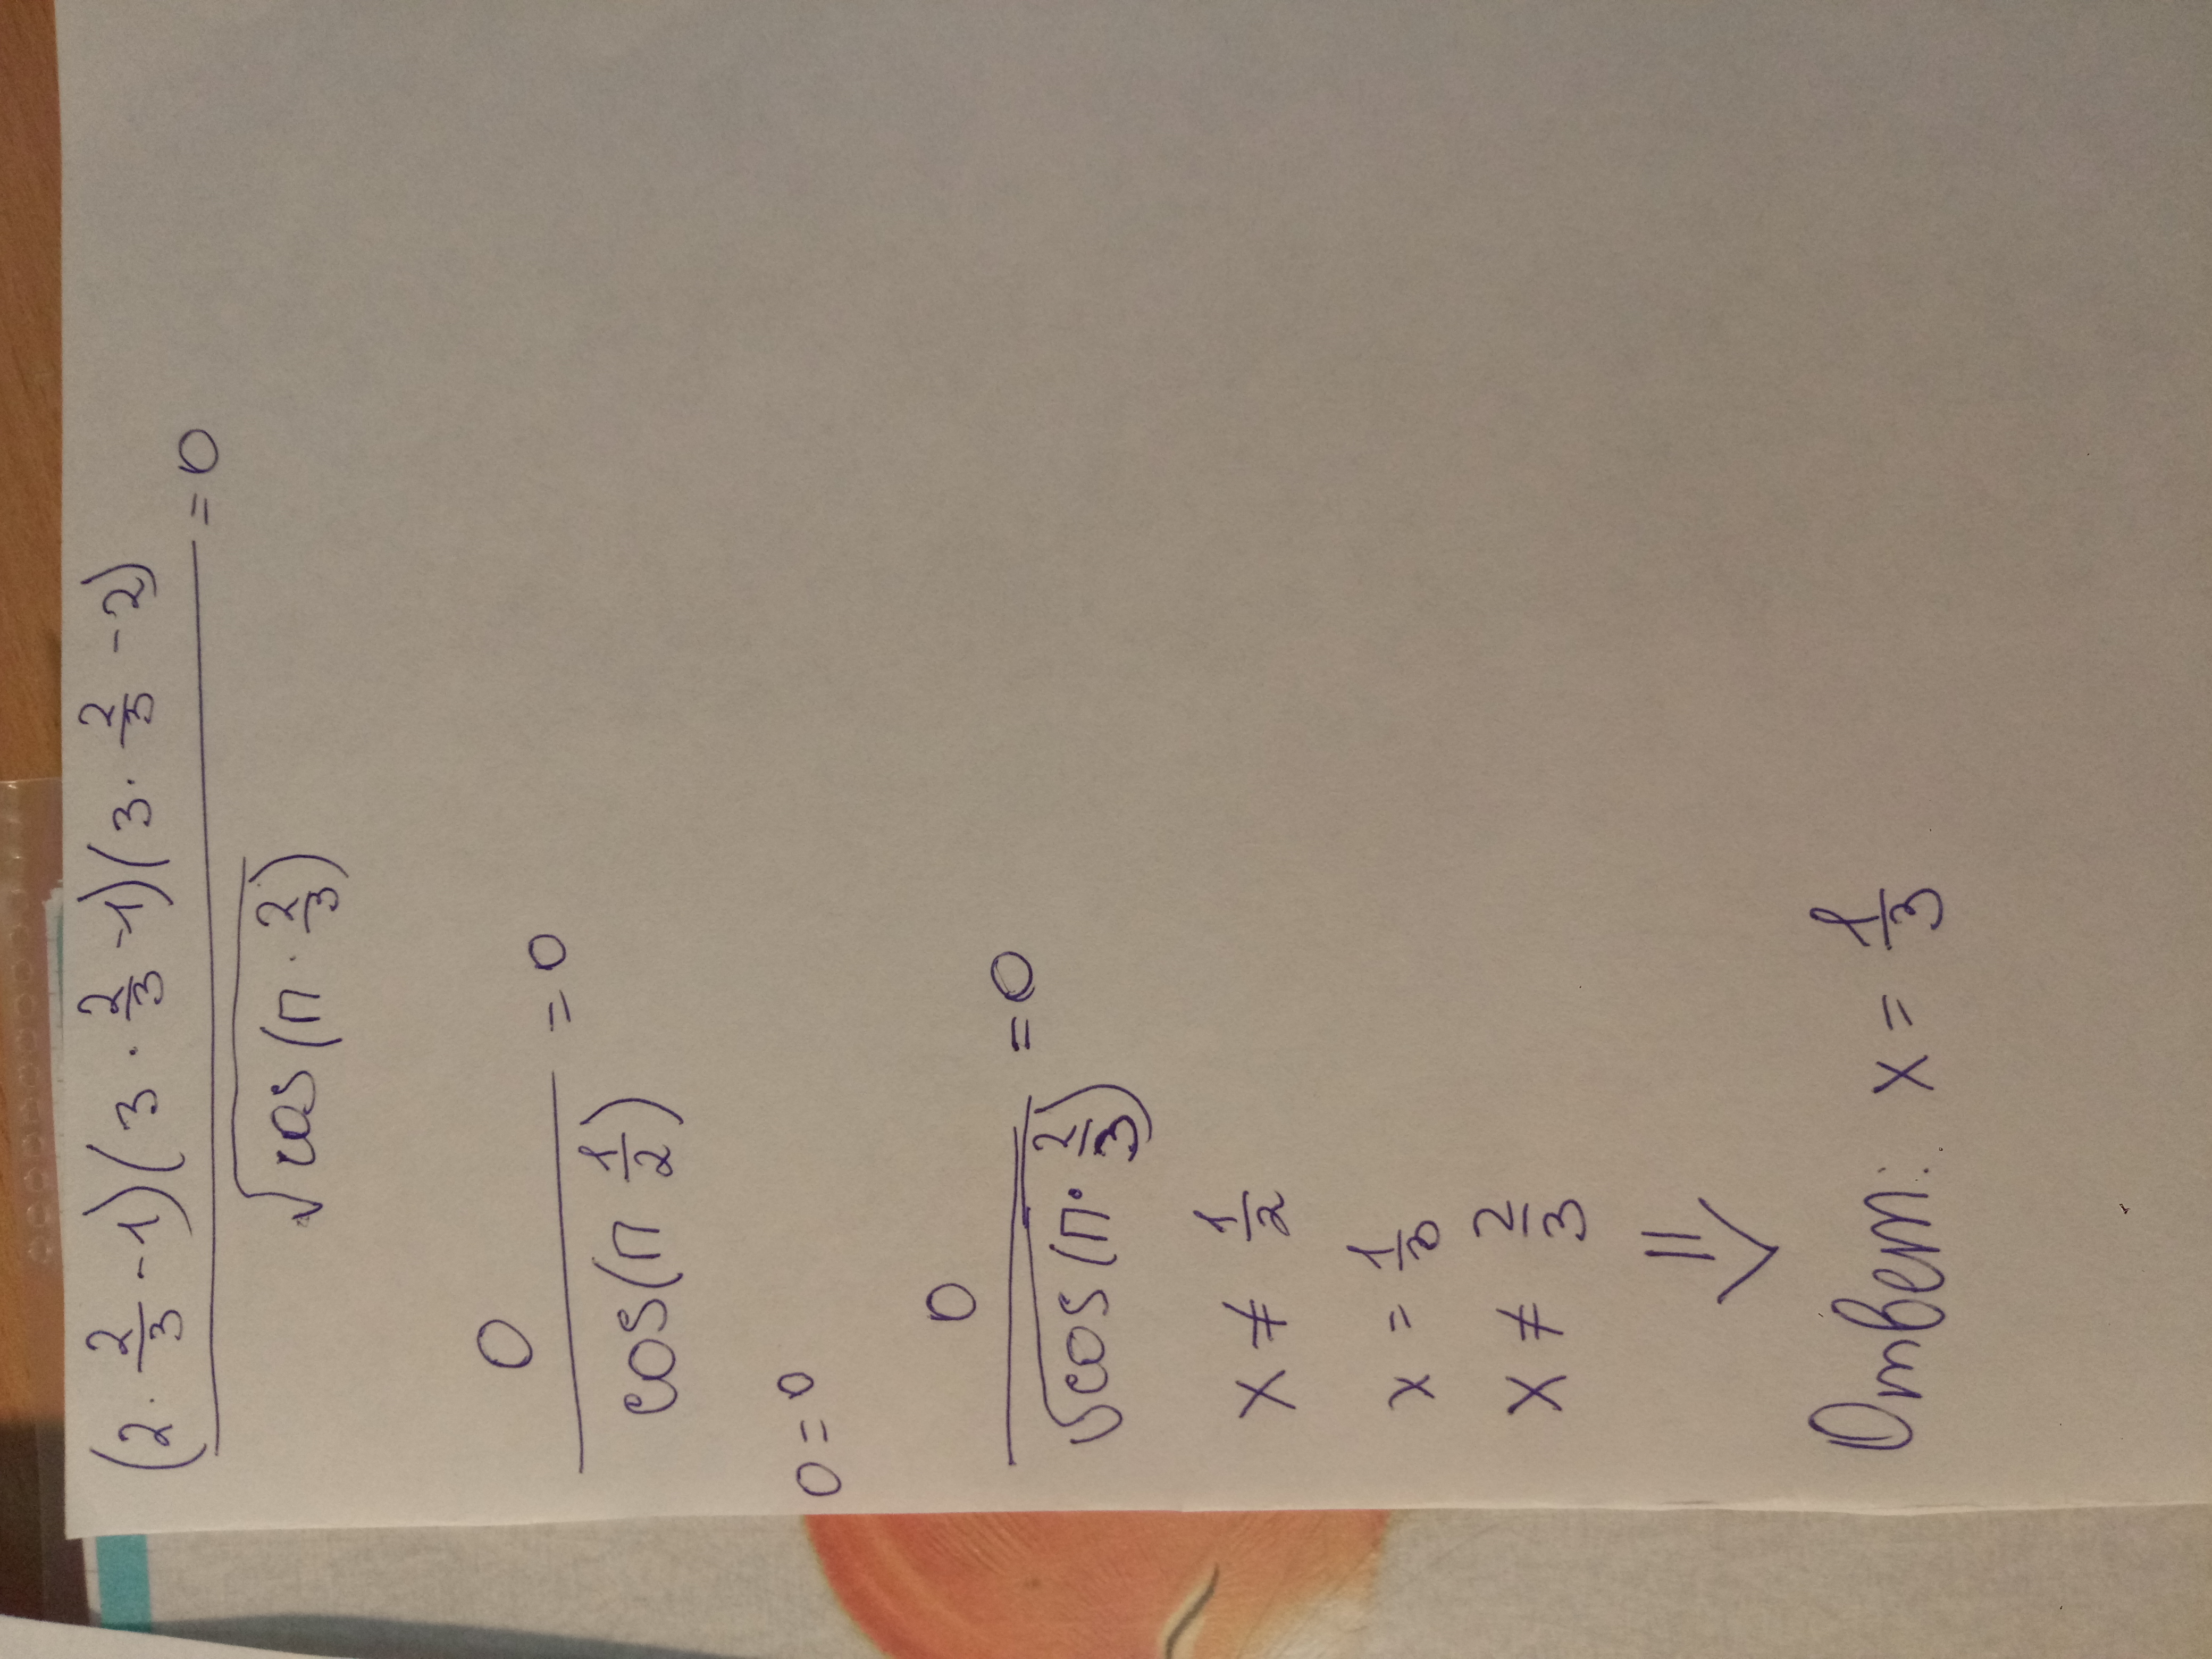 (2 · 2/3 - 1)(3 · 2/3 - 1)(3 · 2/3 - 2) / √cos(π · 2/3) = 0
0 / cos(π 1/2) = 0
0 = 0
0 / √cos(π · 2/3) = 0
x ≠ 1/2
x = 1/3
x ≠ 2/3
⇓
Ответ: x = 1/3